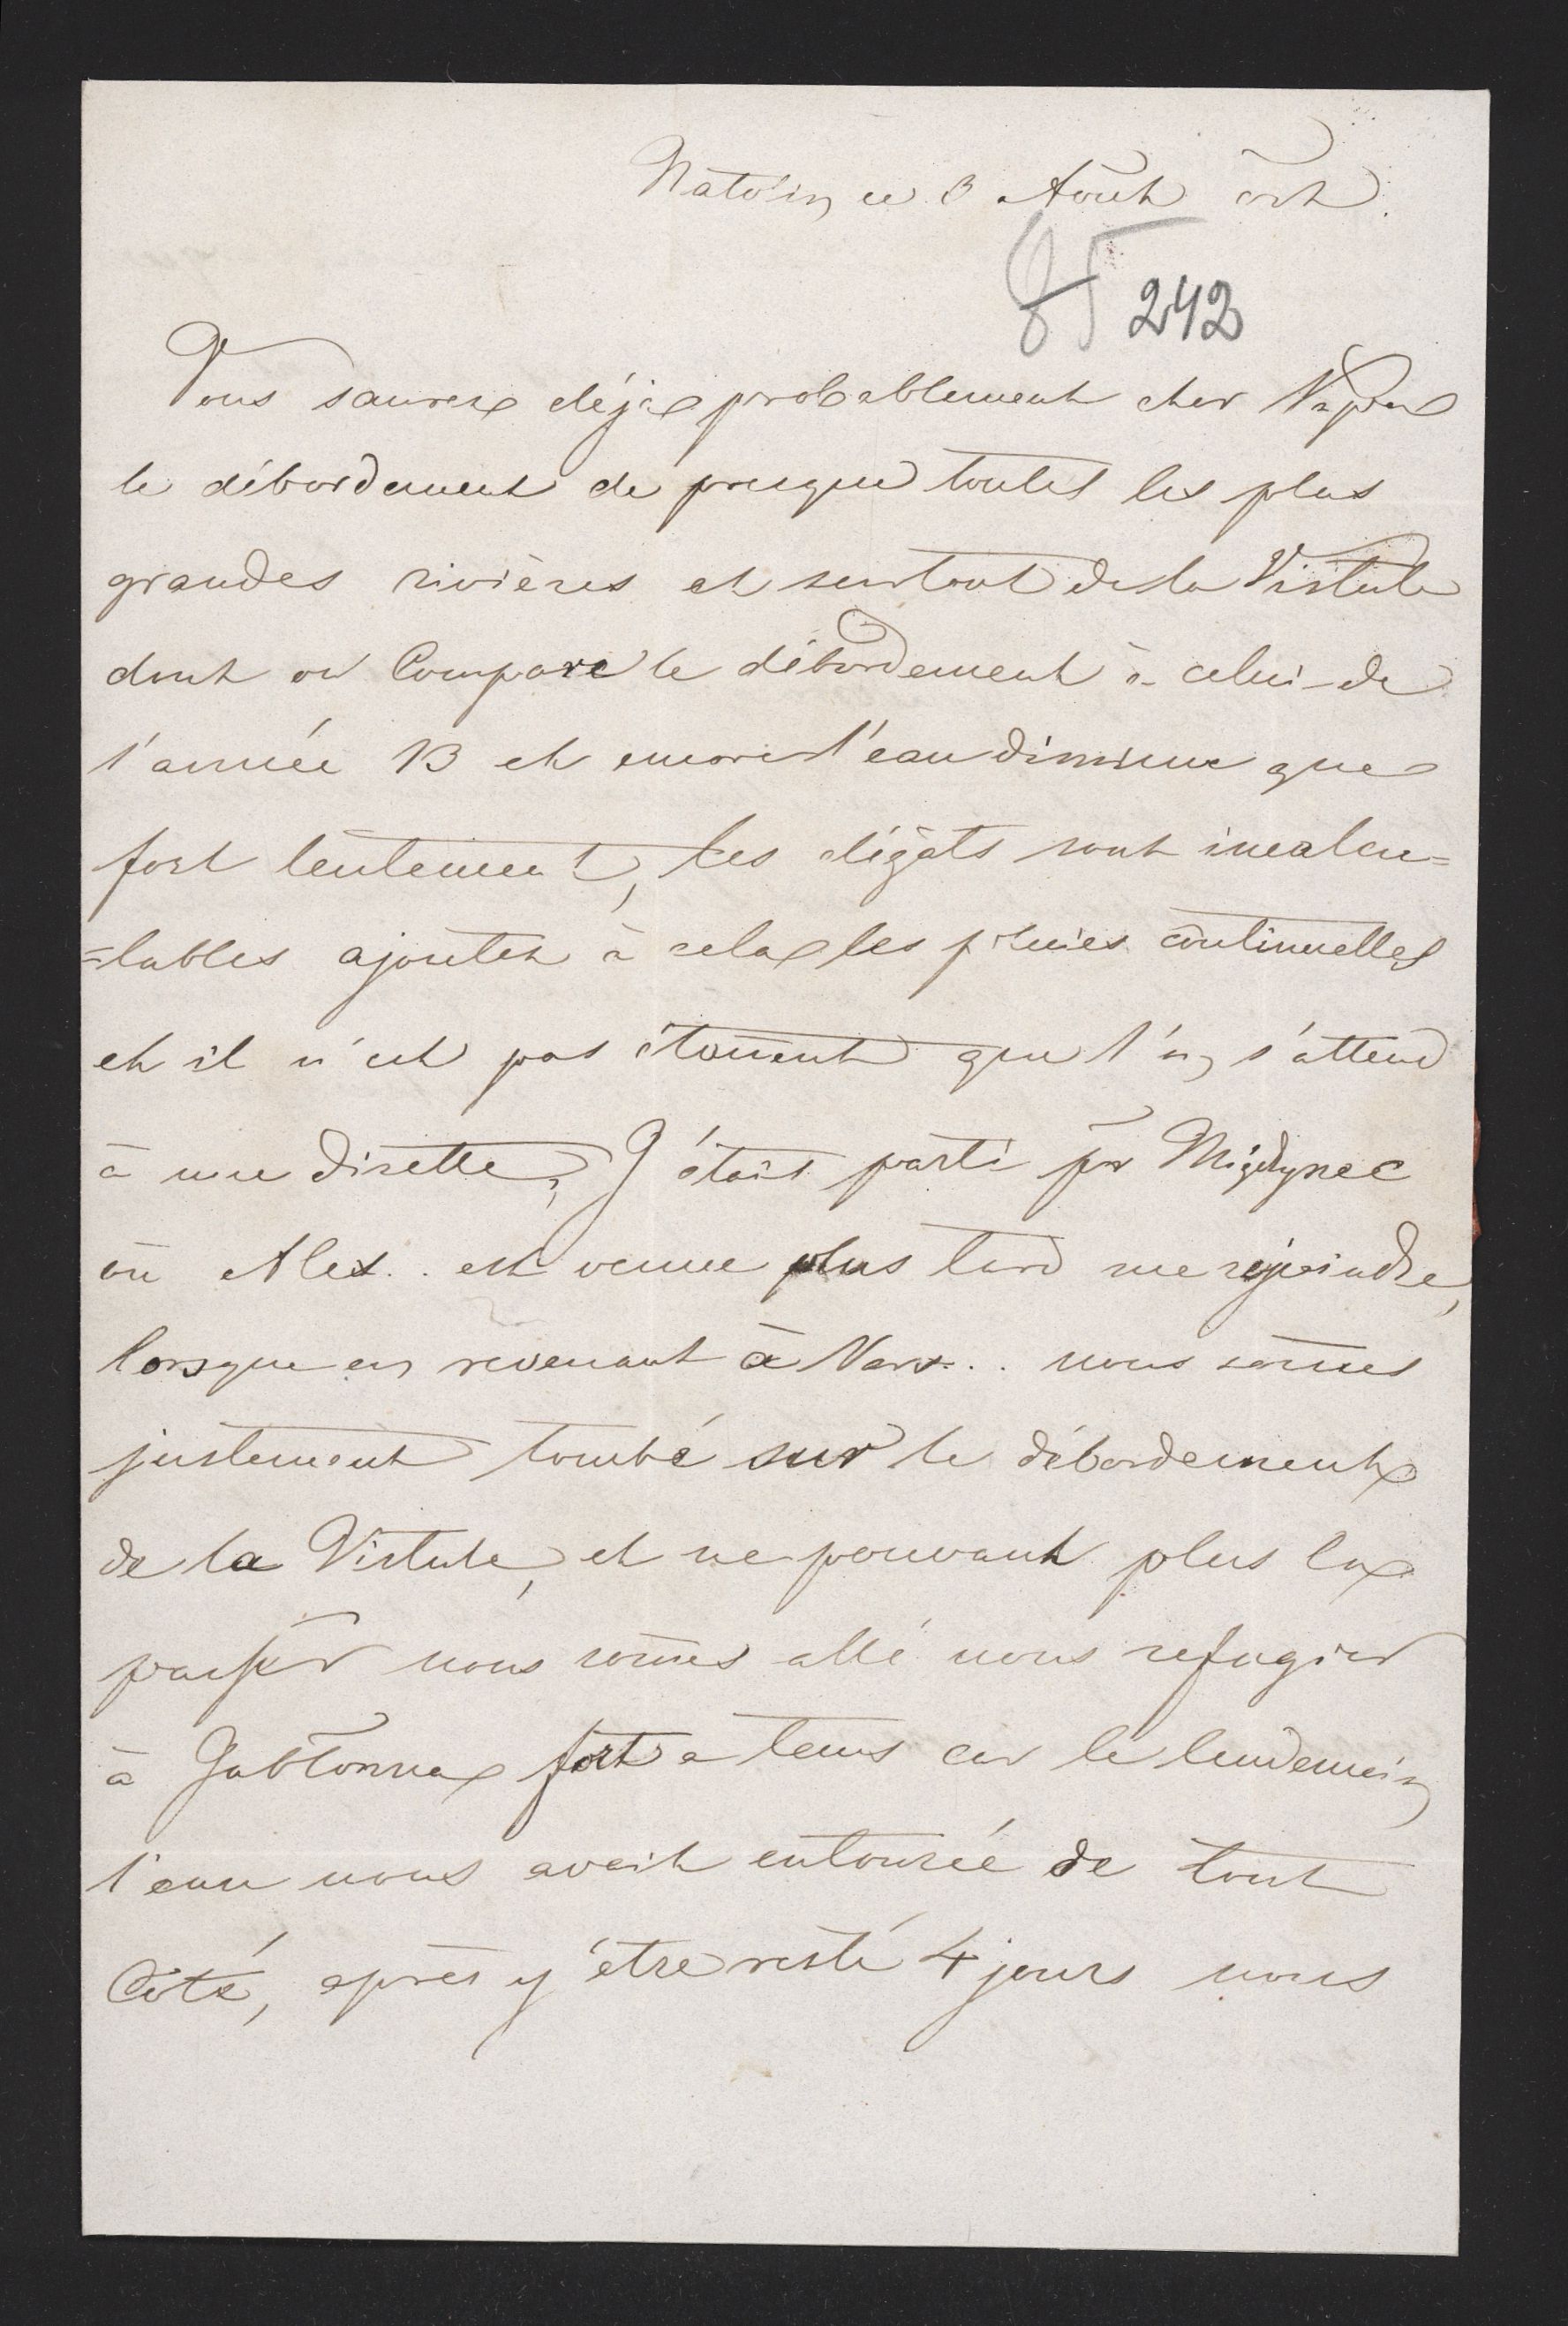 Natolin ce 3 Août
85 242
Vous saurez déja probablement cher Papa
le débordement de presque toutes les plus
grandes rivières et surtout de la Vistule
dont on Compare le débordement à celui de
l'année 13 et encore l'eau diminue que
fort lentement, les dégats sont incalcu=
=lables ajoutez à cela les pluies continuelles
et il n'est pas étonent que l'on s'attend
à une disette, J'étais parti pr Migdzyrec
ou Alex.. est venue plus tard me rejoindre,
lorsque en revenant à Vars... nous somes
justement tombé sur le débordement
de la Vistule, et ne pouvant plus la
passer nous somes allé nous refugier
à Jabłonna fort a tems car le lendemain
l'eau nous avait entourée de tout
Côté, après y être resté 4 jours nous